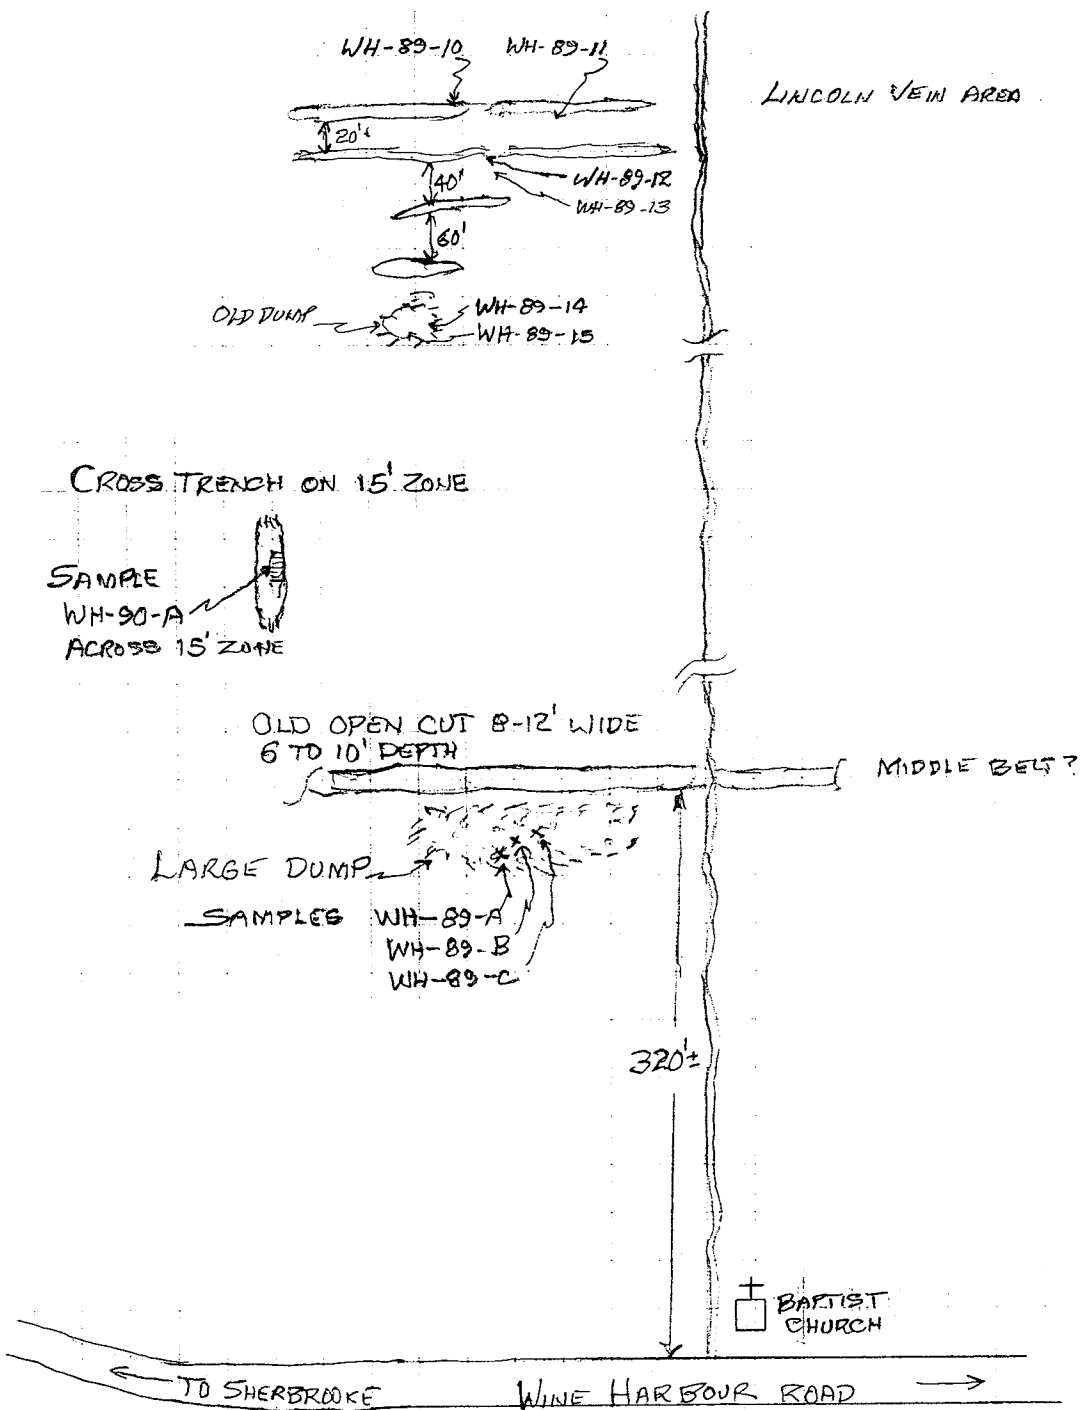 WH-89-10 WH-89-11
LINCOLN VEIN AREA
20'±
WH-89-12
40'
WH-89-13
60'
OLD DUMP
WH-89-14
WH-89-15
CROSS TRENCH ON 15' ZONE
SAMPLE
WH-90-A
ACROSS 15' ZONE
OLD OPEN CUT 8-12' WIDE
6 TO 10' DEPTH
MIDDLE BELT?
LARGE DUMP
SAMPLES WH-89-A
WH-89-B
WH-89-C
320'±
BAPTIST
CHURCH
TO SHERBROOKE WINE HARBOUR ROAD